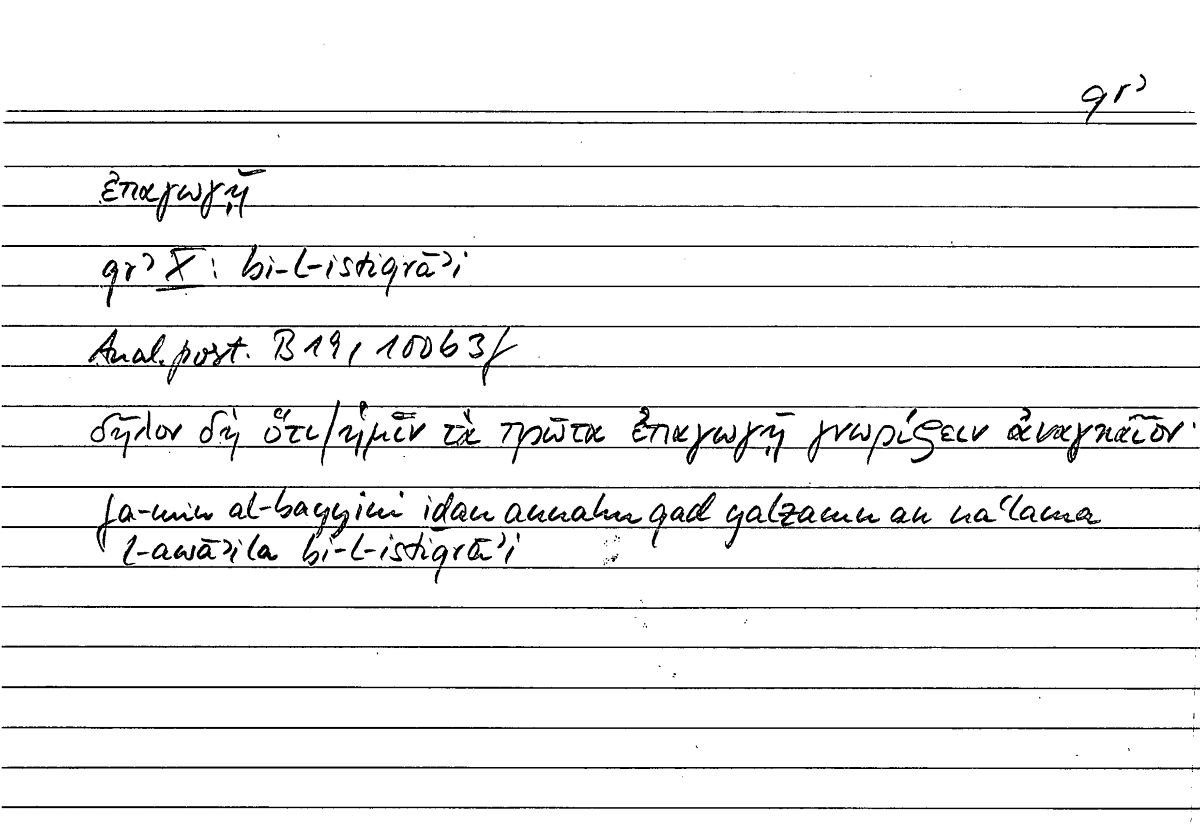 qrʾ
ἐπαγωγῇ
qrʾ X: bi-l-istiqrāʾi
Anal. post. B 19, 100b3f
δῆλον δὴ ὅτι/ἡμῖν τὰ πρῶτα ἐπαγωγῇ γνωρίζειν ἀναγκαῖον·
fa-min al-bayyini iḏan annahu qad yalzamu an naʿlama
l-awāʾila bi-l-istiqrāʾi